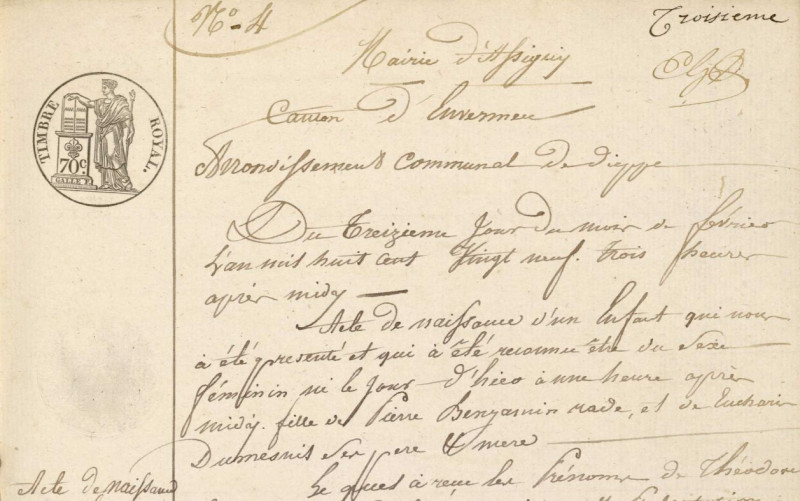 N° 4
Troisieme
Mairie d'Assigny
Canton d'Envermeu
TIMBRE ROYAL.
70c
GALLE F.
Arrondissement Communal de dieppe
Du Treizieme Jour du mois de février
L'an mil huit cent Vingt neuf. trois heures
après midy
Acte de naissance d'un Enfant qui nous
à été presenté et qui à été reconnu être du Sexe
féminin né le Jour d'hier à une heure après
midy. fille de Pierre Benjamin rade, et de Eucharis
Dumesnil Ses pere & mere
Acte de naissance
Le quel à reçu les Prénoms de Théodore